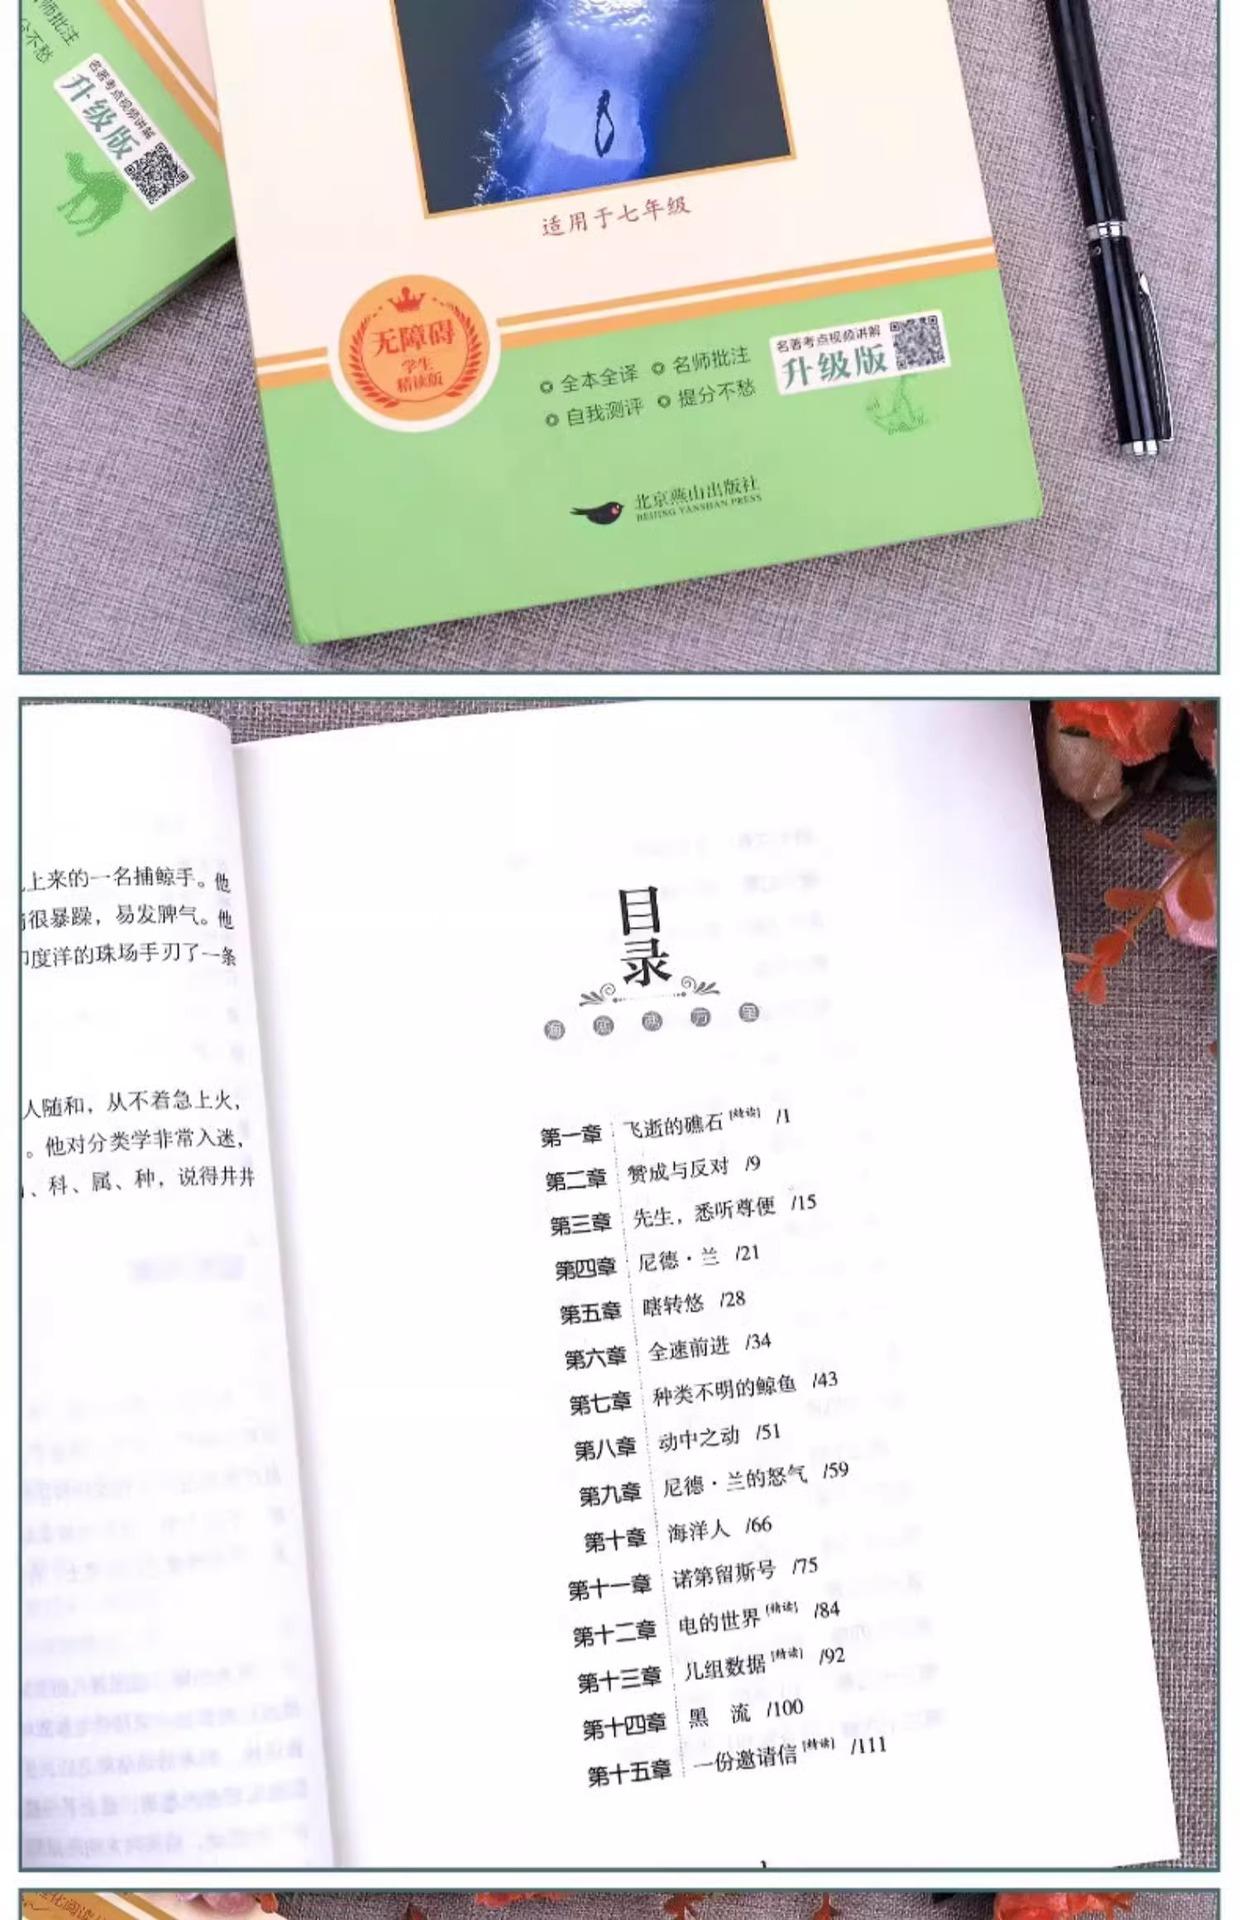 师批注
分不愁
名著考点视频讲解
升级版
适用于七年级
无障碍
学生
精读版
全本全译 名师批注
自我测评 提分不愁
名著考点视频讲解
升级版
北京燕山出版社
BEIJING YANSHAN PRESS
上来的一名捕鲸手。他
很暴躁，易发脾气。他
度洋的珠场手刃了一条
人随和，从不着急上火，
。他对分类学非常入迷，
、科、属、种，说得井井
目录
海底两万里
第一章 飞逝的礁石[精读] /1
第二章 赞成与反对 /9
第三章 先生，悉听尊便 /15
第四章 尼德·兰 /21
第五章 瞎转悠 /28
第六章 全速前进 /34
第七章 种类不明的鲸鱼 /43
第八章 动中之动 /51
第九章 尼德·兰的怒气 /59
第十章 海洋人 /66
第十一章 诺第留斯号 /75
第十二章 电的世界[精读] /84
第十三章 几组数据[精读] /92
第十四章 黑 流 /100
第十五章 一份邀请信[精读] /111